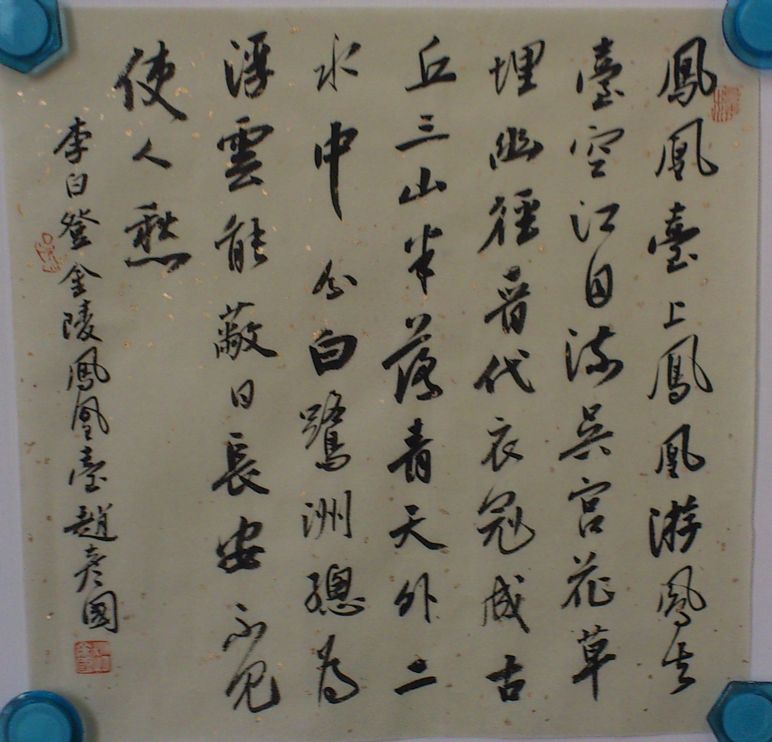 鳳凰臺上鳳凰游鳳去
臺空江自流吳宮花草
埋幽徑晉代衣冠成古
丘三山半落青天外二
水中分白鷺洲總為
浮雲能蔽日長安不見
使人愁
李白登金陵鳳凰臺趙彥國